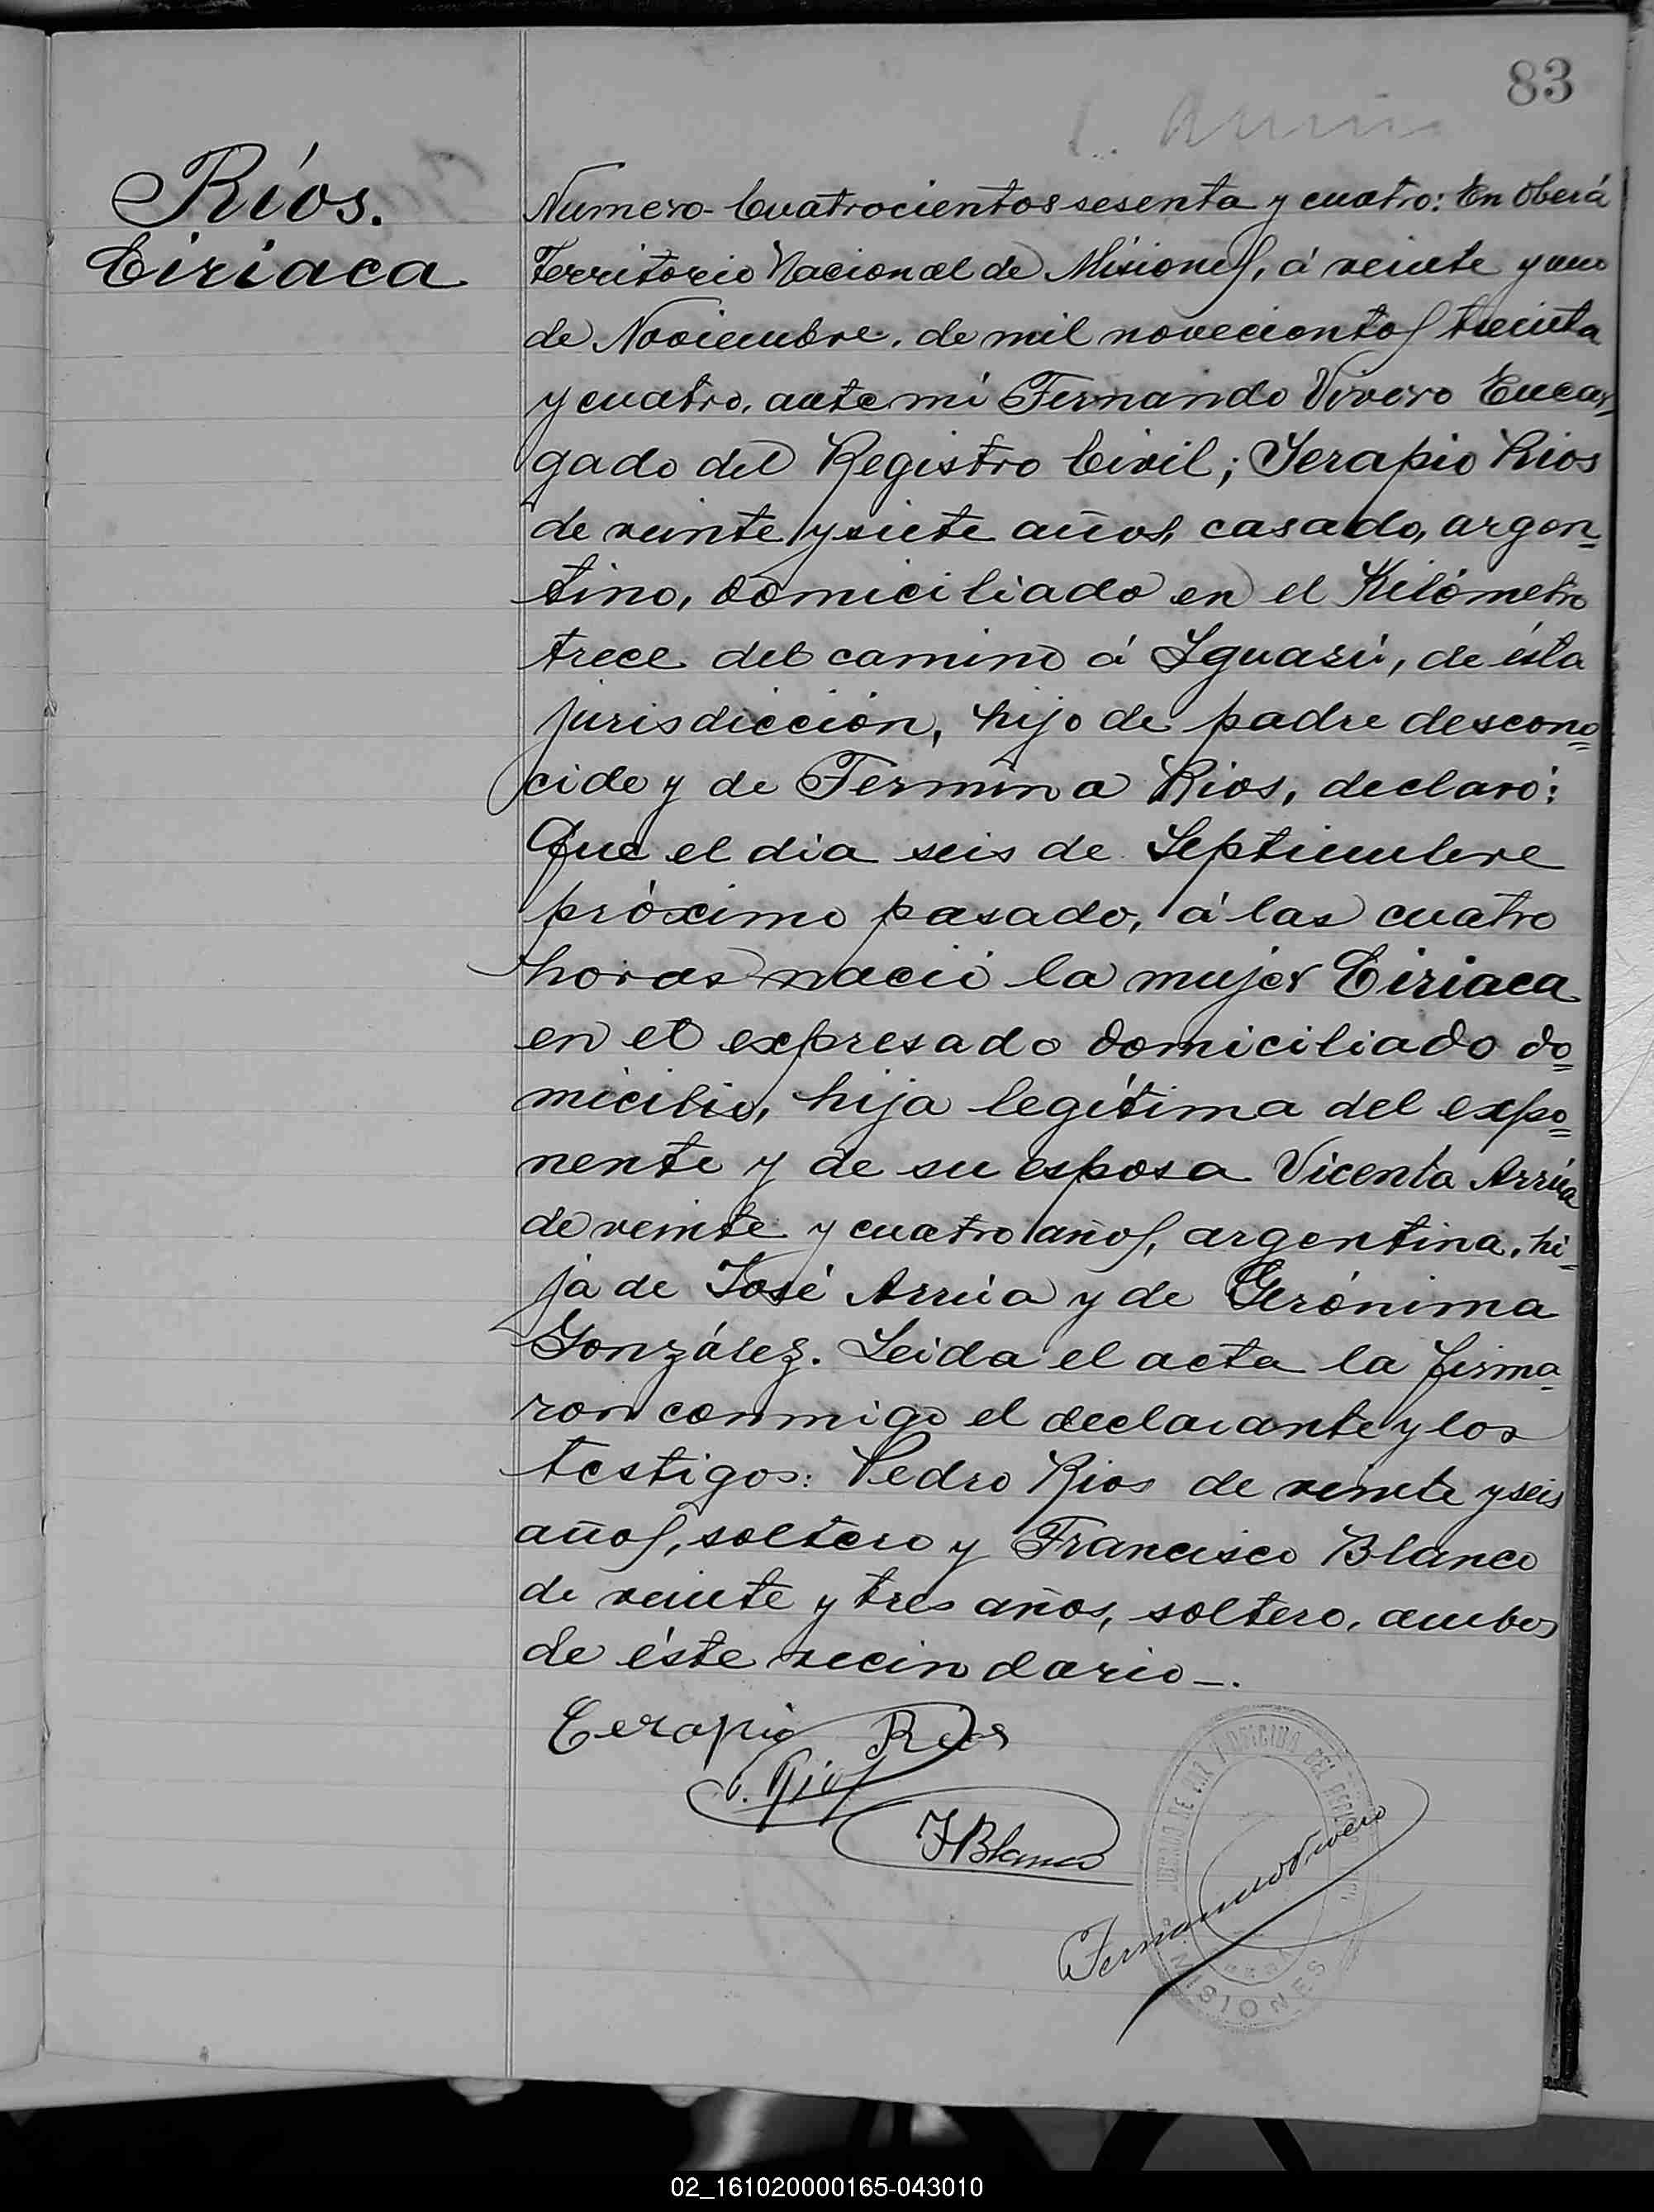 83
Ríos.
Ciriaca
Numero Cuatrocientos sesenta y cuatro: En Oberá
Territorio Nacional de Misiones, á veinte y uno
de Noviembre. de mil novecientos treinta
y cuatro, ante mi Fernando Vivero Encar-
gado del Registro Civil; Serapio Rios
de veinte y siete años, casado, argen=
tino, domiciliado en el Kilómetro
trece del camino á Iguazú, de ésta
jurisdicción, hijo de padre descono=
cido y de Fermina Rios, declaró:
Que el dia seis de Septiembre
próximo pasado, á las cuatro
horas nació la mujer Ciriaca
en el expresado domiciliado do=
micilio, hija legítima del expo=
nente y de su esposa Vicenta Arrúa
de veinte y cuatro años, argentina, hi=
ja de José Arrúa y de Gerónima
González. Leida el acta la firma=
ron conmigo el declarante y los
testigos: Pedro Rios de veinte y seis
años, soltero y Francisco Blanco
de veinte y tres años, soltero, ambos
de éste vecindario_.
Cerapio Rios
P. Rios
F Blanco
Fernando Vivero
JUZGADO DE PAZ Y OFICINA DEL REGISTRO CIVIL
MISIONES
02_161020000165-043010